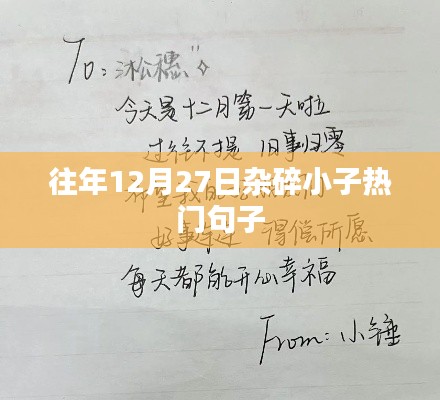 To：淞穗
今天是十二月第一天啦
过往不提 旧事归零
往年12月27日杂碎小子热
门句子
得偿所愿
每天都能开心幸福
From：小锤